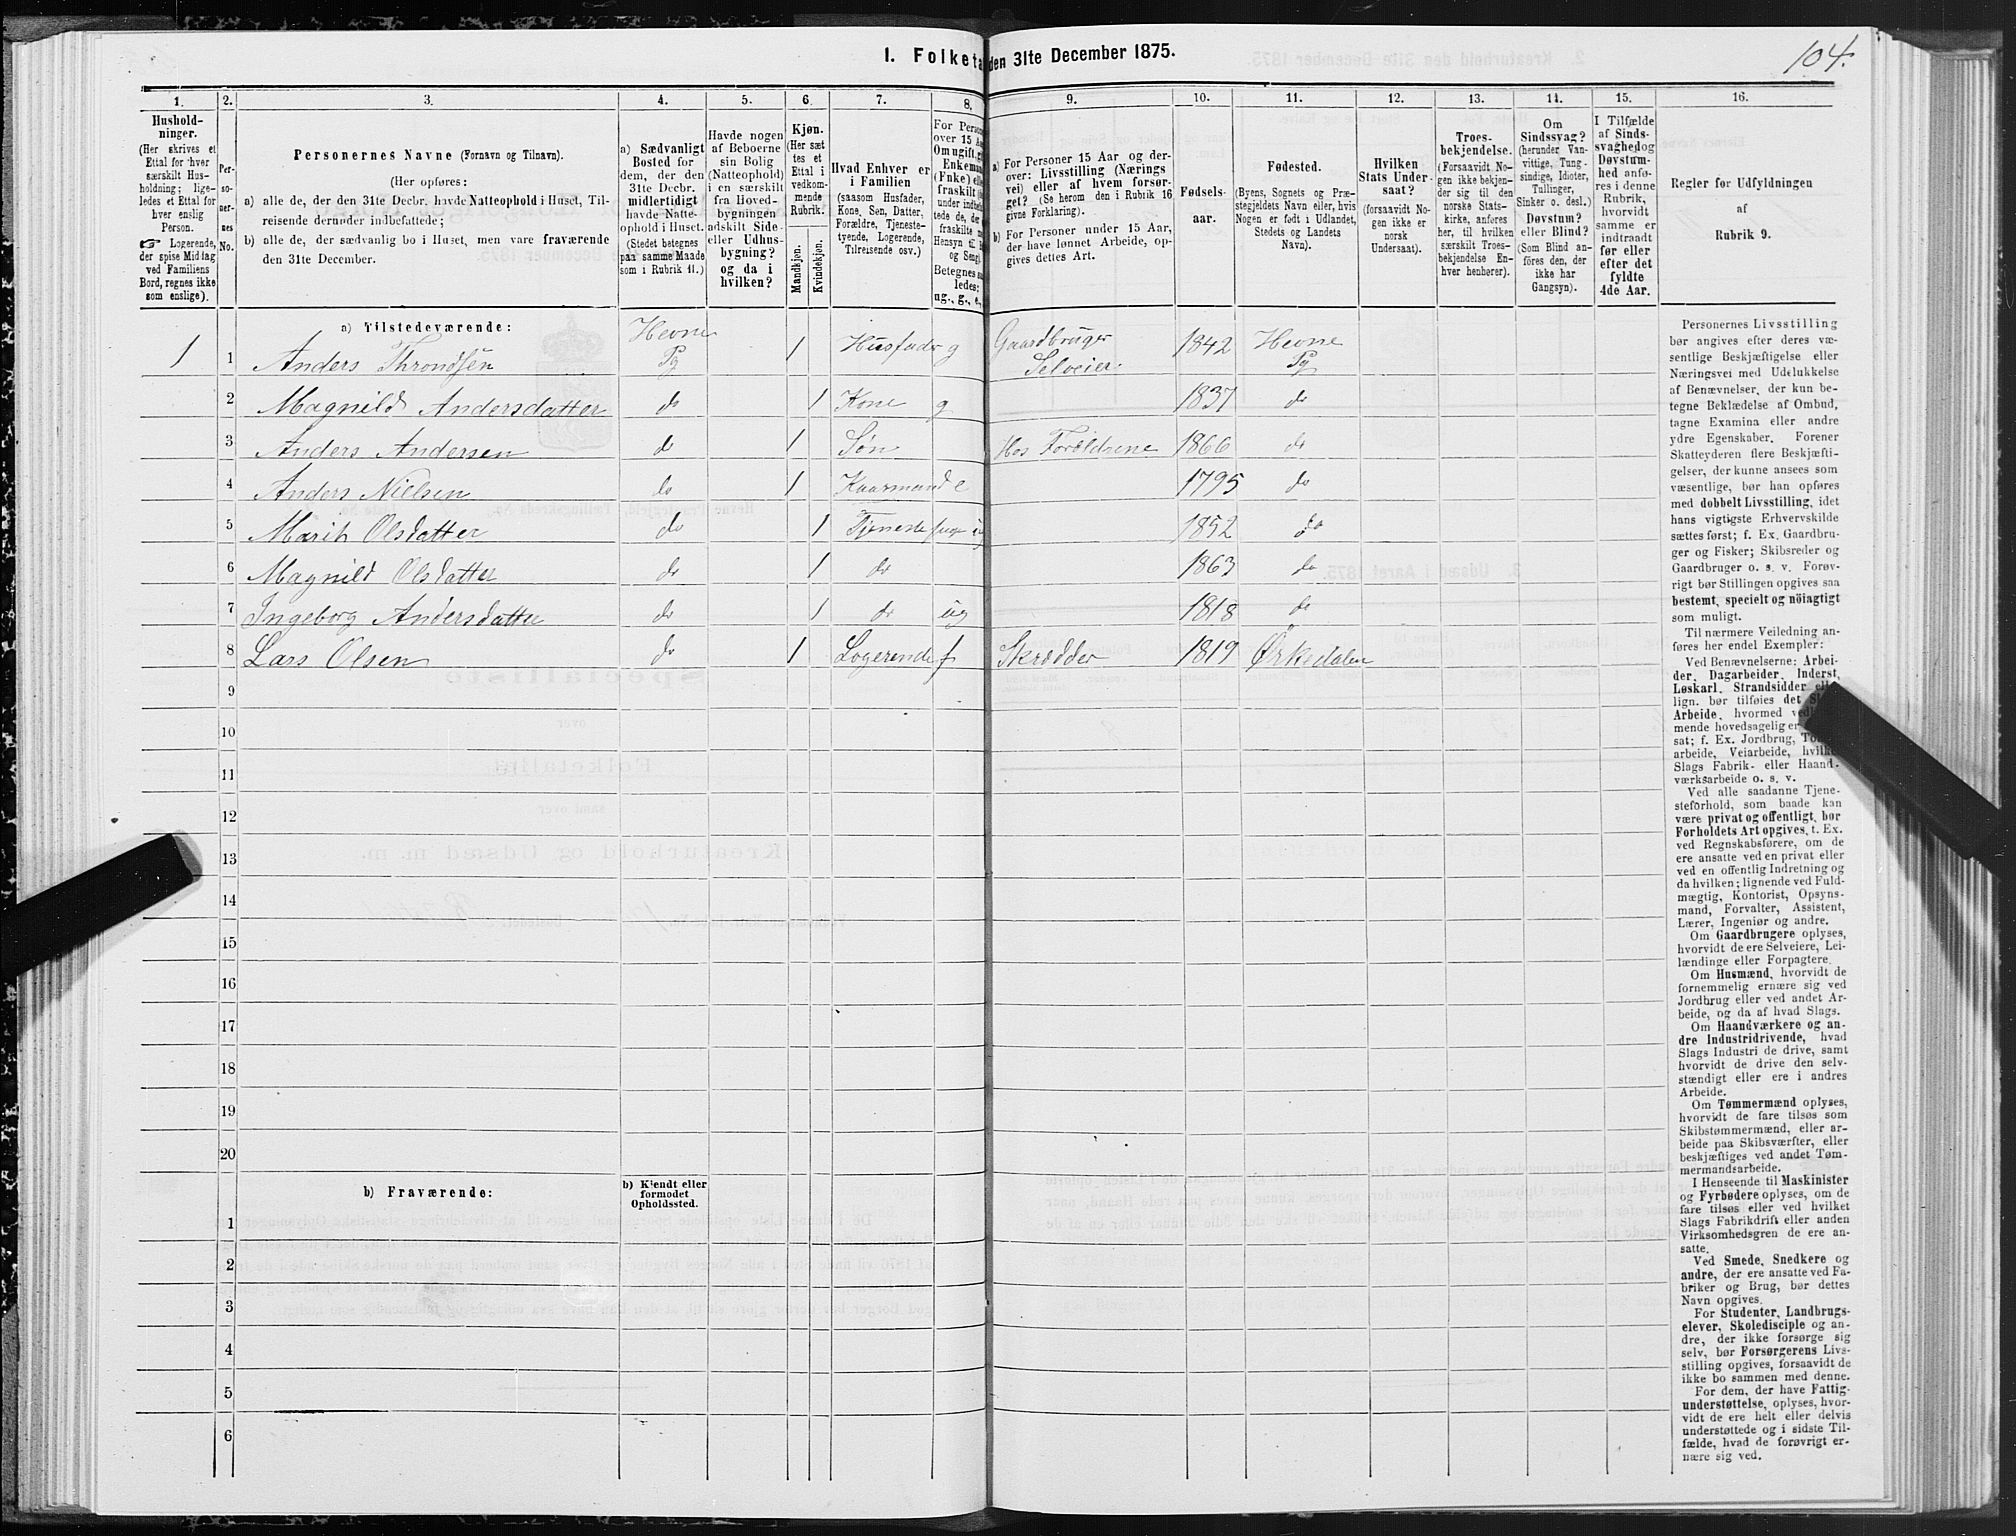 I. Folketa den 31te December 1875.
104.
1. 2. 3. 4. 5. 6. 7. 8. 9. 10. 11. 12. 13. 14. 15. 16.
Hushold-
ninger.
(Her skrives et
Ettal for hver
særskilt Hus-
holdning; lige-
ledes et Ettal for
hver enslig
Person.
☞ Logerende,
der spise Middag
ved Familiens
Bord, regnes ikke
som enslige).
Per-
so-
ner-
nes
No.
Personernes Navne (Fornavn og Tilnavn).
(Her opføres:
a) alle de, der den 31te Decbr. havde Natteophold i Huset, Til-
reisende derunder indbefattede;
b) alle de, der sædvanlig bo i Huset, men vare fraværende
den 31te December.
a) Sædvanligt
Bosted for
dem, der den
31te Decbr.
midlertidigt
havde Natte-
ophold i Huset.
(Stedet betegnes
paa samme Maade
som i Rubrik 11.)
Havde nogen
af Beboerne
sin Bolig
(Natteophold)
i en særskilt
fra Hoved-
bygningen
adskilt Side-
eller Udhus-
bygning?
og da i
hvilken?
Kjøn.
(Her sæt-
tes et
Ettal i
vedkom-
mende
Rubrik.
Mandkjøn.
Kvindekjøn.
Hvad Enhver er
i Familien
(saasom Husfader,
Kone, Søn, Datter,
Forældre, Tjeneste-
tyende, Logerende,
Tilreisende osv.)
For Perso
over 15 Aa
Om ugift, gi
Enkema
(Enke) elle
fraskilt
under indbe
tede de, de
fraskilte
Hensyn til B
og Seng)
Betegnes s
ledes:
ug., g., e.,
a) For Personer 15 Aar og der-
over: Livsstilling (Nærings
vei) eller af hvem forsør-
get? (Se herom den i Rubrik 16
givne Forklaring).
b) For Personer under 15 Aar,
der have lønnet Arbeide, op-
gives dettes Art.
Fødsels-
aar.
Fødested.
(Byens, Sognets og Præ-
stegjeldets Navn eller, hvis
Nogen er født i Udlandet,
Stedets og Landets
Navn).
Hvilken
Stats Under-
saat?
(forsaavidt No-
gen ikke er
norsk
Undersaat).
Troes-
bekjendelse.
(Forsaavidt No-
gen ikke bekjen-
der sig til den
norske Stats-
kirke, anføres
her, til hvilken
særskilt Troes-
bekjendelse En-
hver henhører).
Om
Sindssvag?
(herunder Van-
vittige, Tung-
sindige, Idioter,
Tullinger,
Sinker o. desl.)
Døvstum?
eller Blind?
(Som Blind an-
føres den, der
ikke har
Gangsyn).
I Tilfælde
af Sinds-
svaghed og
Døvstum-
hed anfø-
res i denne
Rubrik,
hvorvidt
samme er
indtraadt
før eller
efter det
fyldte
4de Aar.
Regler for Udfyldningen
af
Rubrik 9.
a) Tilstedeværende:
1 1 Anders Throndsen Hevne Pg 1 Husfader g Gaardbruger Selveier. 1842 Hevne Pg
2 Magnild Andersdatter do 1 Kone g 1837 do
3 Anders Andersen do 1 Søn Hos Forældrene 1866 do
4 Anders Nielsen do 1 Kaarmand e 1795 do
5 Marit Olsdatter do 1 Tjenestepige ug 1852 do
6 Magnild Olsdatter do 1 do 1863 do
7 Ingeborg Andersdatter do 1 do ug 1818 do
8 Lars Olsen do 1 Logerende f Skrædder 1819 Ørkedalen
9
10
11
12
13
14
15
16
17
18
19
20
b) Fraværende:
b) Kjendt eller
formodet
Opholdssted.
1
2
3
4
5
6
Personernes Livsstilling
bør angives efter deres væ-
sentlige Beskjæftigelse eller
Næringsvei med Udelukkelse
af Benævnelser, der kun be-
tegne Beklædelse af Ombud,
tagne Examina eller andre
ydre Egenskaber. Forener
Skatteyderen flere Beskjæfti-
gelser, der kunne ansees som
væsentlige, bør han opføres
med dobbelt Livsstilling, idet
hans vigtigste Erhvervskilde
sættes først; f. Ex. Gaardbru-
ger og Fisker; Skibsreder og
Gaardbruger o. s. v. Forøv-
rigt bør Stillingen opgives saa
bestemt, specielt og nöiagtigt
som muligt.
Til nærmere Veiledning an-
føres her endel Exempler:
Ved Benævnelserne: Arbei-
der, Dagarbeider, Inderst,
Løskarl, Strandsidder ell
lign. bør tilføies det S
Arbeide, hvormed ved
mende hovedsagelig er
sat; f. Ex. Jordbrug, To
arbeide, Veiarbeide, hvilke
Slags Fabrik- eller Haand-
værksarbeide o. s. v.
Ved alle saadanne Tjene-
steforhold, som baade kan
være privat og offentligt, bør
Forholdets Art opgives, t. Ex.
ved Regnskabsførere, om de
ere ansatte ved en privat eller
ved en offentlig Indretning og
da hvilken; lignende ved Fuld-
mægtig, Kontorist, Opsyns-
mand, Forvalter, Assistent,
Lærer, Ingeniør og andre.
Om Gaardbrugere oplyses,
hvorvidt de ere Selveiere, Lei-
lændinge eller Forpagtere.
Om Husmænd, hvorvidt de
fornemmelig ernære sig ved
Jordbrug eller ved andet Ar-
beide, og da af hvad Slags.
Om Haandværkere og an-
dre Industridrivende, hvad
Slags Industri de drive, samt
hvorvidt de drive den selv-
stændigt eller ere i andres
Arbeide.
Om Tømmermænd oplyses,
hvorvidt de fare tilsøs som
Skibstømmermænd, eller ar-
beide paa Skibsværfter, eller
beskjæftiges ved andet Tøm-
mermandsarbeide.
I Henseende til Maskinister
og Fyrbødere oplyses, om de
fare tilsøs eller ved hvilket
Slags Fabrikdrift eller anden
Virksomhedsgren de ere an-
satte.
Ved Smede, Snedkere og
andre, der ere ansatte ved Fa-
briker og Brug, bør dettes
Navn opgives.
For Studenter, Landbrugs-
elever, Skoledisciple og an-
dre, der ikke forsørge sig
selv, bør Forsørgerens Livs-
stilling opgives, forsaavidt de
ikke bo sammen med denne.
For dem, der have Fattig-
understøttelse, oplyses, hvor-
vidt de ere helt eller delvis
understøttede og i sidste Til-
fælde, hvad de forøvrigt er-
nære sig ved.